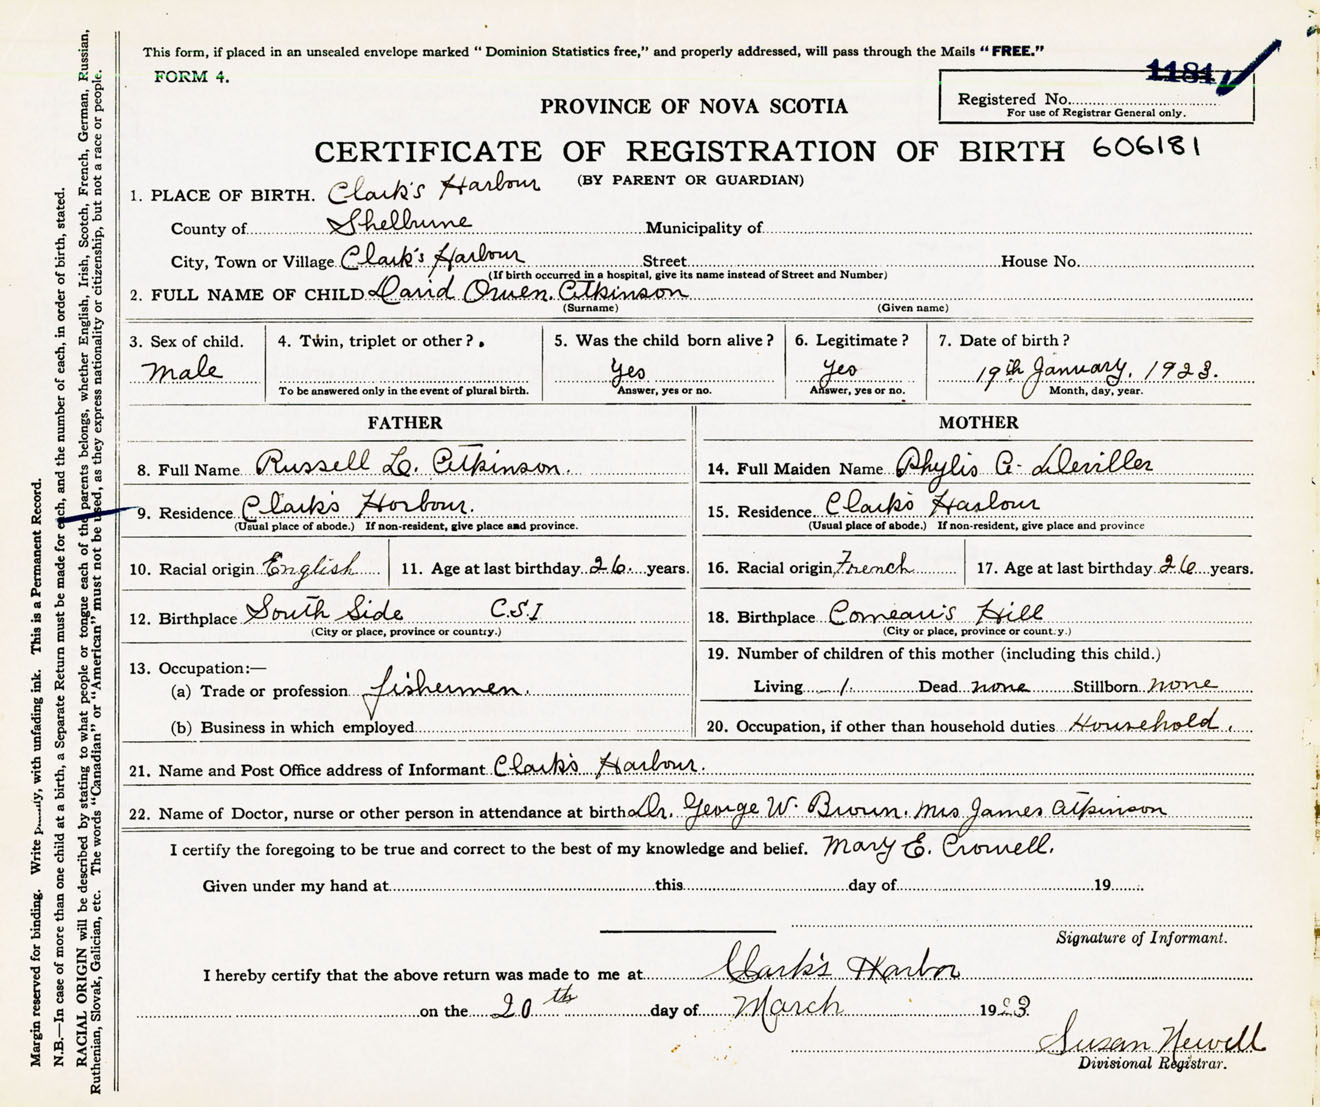 This form, if placed in an unsealed envelope marked "Dominion Statistics free," and properly addressed, will pass through the Mails "FREE."
FORM 4.
1181
Registered No.
For use of Registrar General only.
PROVINCE OF NOVA SCOTIA
CERTIFICATE OF REGISTRATION OF BIRTH 606181
(BY PARENT OR GUARDIAN)
1. PLACE OF BIRTH. Clark's Harbour
County of Shelburne Municipality of
City, Town or Village Clark's Harbour Street House No.
(If birth occurred in a hospital, give its name instead of Street and Number)
2. FULL NAME OF CHILD David Owen. Atkinson
(Surname) (Given name)
3. Sex of child. 4. Twin, triplet or other? 5. Was the child born alive? 6. Legitimate? 7. Date of birth?
Male Yes Yes 19th January, 1923.
To be answered only in the event of plural birth. Answer, yes or no. Answer, yes or no. Month, day, year.
FATHER MOTHER
8. Full Name Russell L. Atkinson. 14. Full Maiden Name Phylis A. Deviller
9. Residence Clark's Harbour. 15. Residence Clark's Harbour
(Usual place of abode.) If non-resident, give place and province. (Usual place of abode.) If non-resident, give place and province
10. Racial origin English 11. Age at last birthday 26. years. 16. Racial origin French 17. Age at last birthday 26 years.
12. Birthplace South Side C.S.I 18. Birthplace Comeau's Hill
(City or place, province or country.) (City or place, province or country.)
13. Occupation:— 19. Number of children of this mother (including this child.)
(a) Trade or profession fishermen. Living 1. Dead none Stillborn none
(b) Business in which employed 20. Occupation, if other than household duties Household.
21. Name and Post Office address of Informant Clark's Harbour.
22. Name of Doctor, nurse or other person in attendance at birth Dr. George W. Brown. Mrs James Atkinson
I certify the foregoing to be true and correct to the best of my knowledge and belief. Mary E. Crowell.
Given under my hand at this day of 19
Signature of Informant.
I hereby certify that the above return was made to me at Clark's Harbor
on the 20th day of March 1923
Susan Newell
Divisional Registrar.
Margin reserved for binding. Write with unfading ink. This is a Permanent Record.
N.B.—In case of more than one child at a birth, a Separate Return must be made for each, and the number of each, in order of birth, stated.
RACIAL ORIGIN will be described by stating to what people or tongue each of the parents belongs, whether English, Irish, Scotch, French, German, Russian,
Ruthenian, Slovak, Galician, etc. The words "Canadian" or "American" must not be used, as they express nationality or citizenship, but not a race or people.